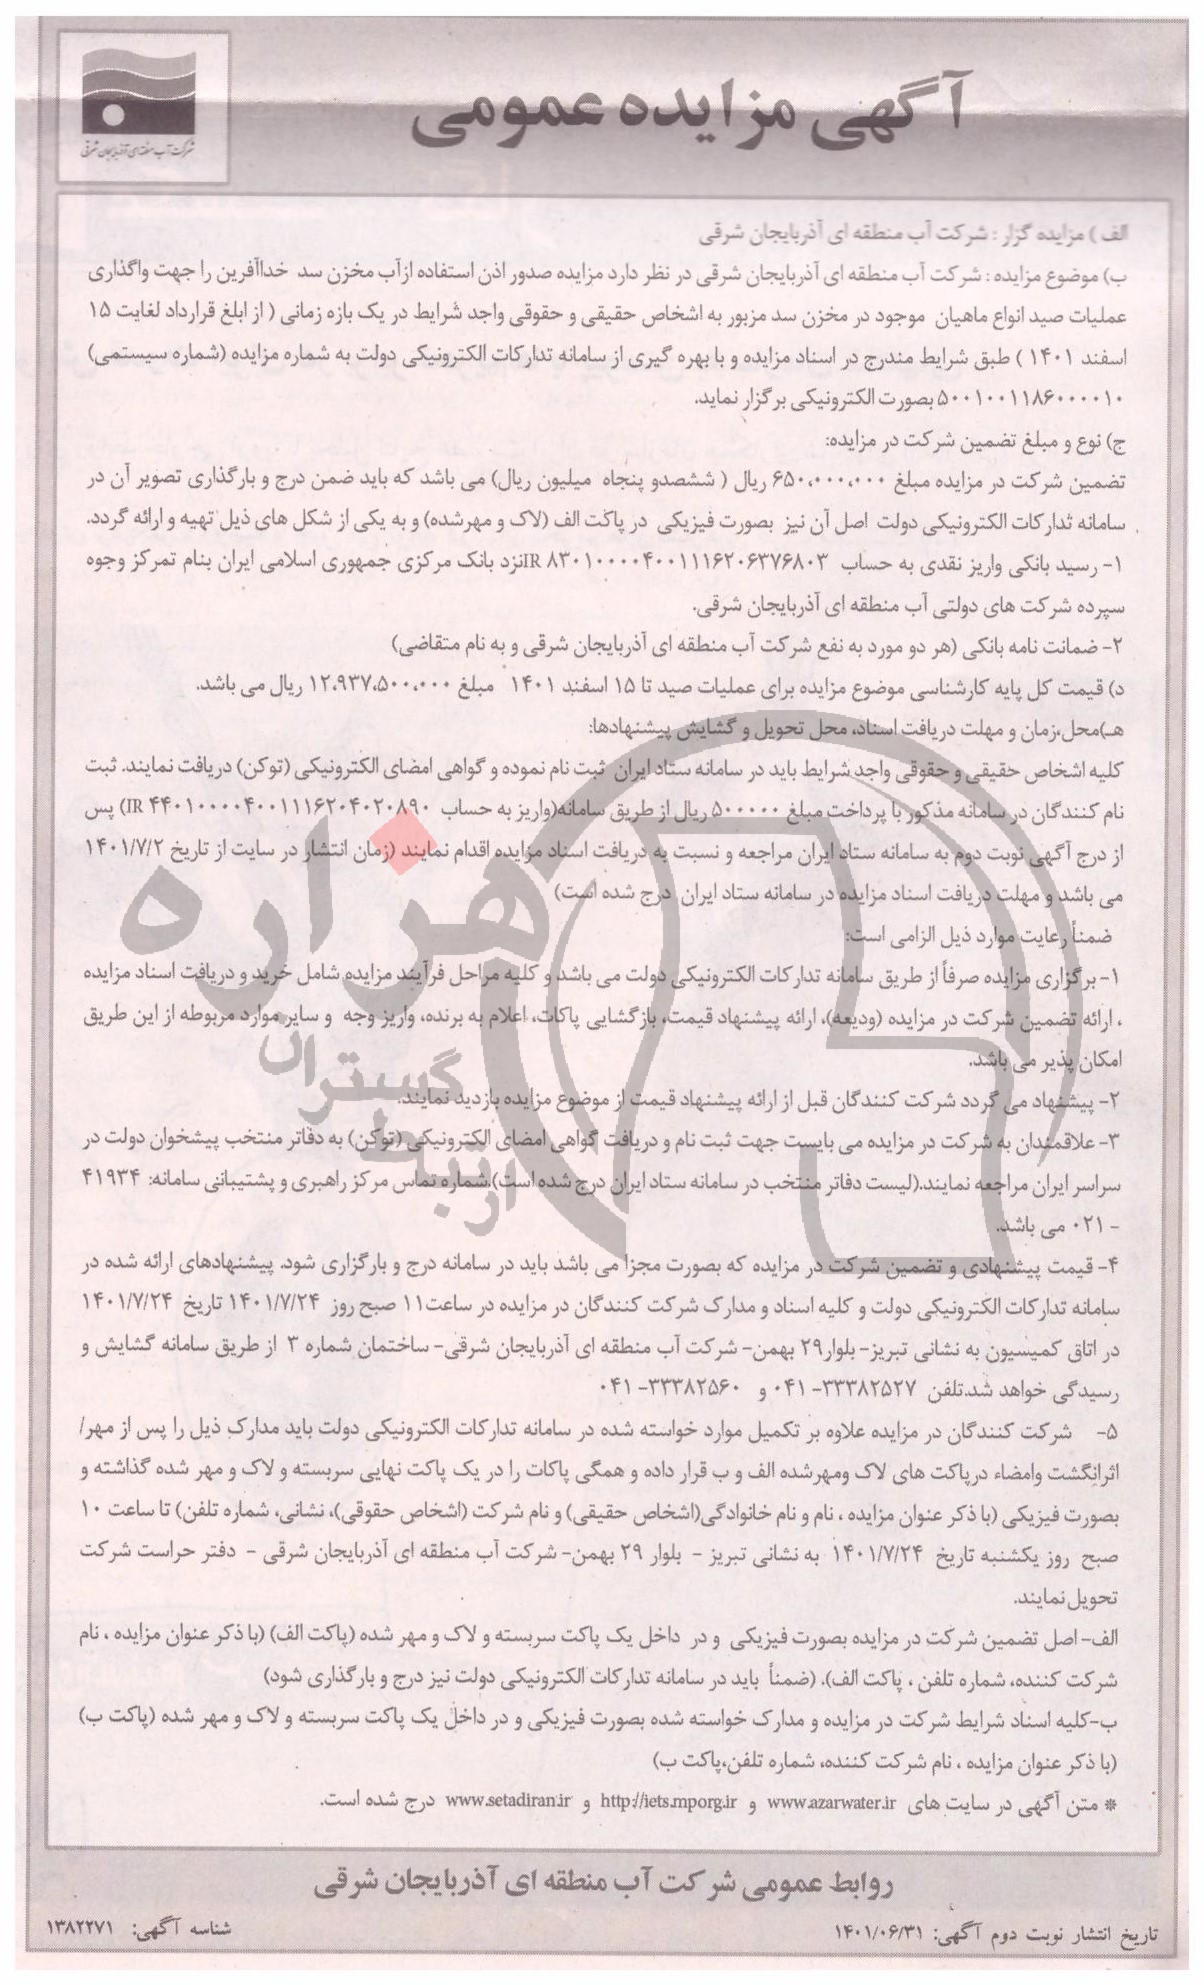 آگهی مزایده عمومی
شرکت آب منطقه ای آذربایجان شرقی
الف ) مزایده گزار : شرکت آب منطقه ای آذربایجان شرقی
ب) موضوع مزایده : شرکت آب منطقه ای آذربایجان شرقی در نظر دارد مزایده صدور اذن استفاده ازآب مخزن سد خداآفرین را جهت واگذاری
عملیات صید انواع ماهیان موجود در مخزن سد مزبور به اشخاص حقیقی و حقوقی واجد شرایط در یک بازه زمانی ( از ابلغ قرارداد لغایت ۱۵
اسفند ۱۴۰۱ ) طبق شرایط مندرج در اسناد مزایده و با بهره گیری از سامانه تدارکات الکترونیکی دولت به شماره مزایده (شماره سیستمی)
۵۰۰۱۰۰۱۱۸۶۰۰۰۰۱۰ بصورت الکترونیکی برگزار نماید.
ج) نوع و مبلغ تضمین شرکت در مزایده:
تضمین شرکت در مزایده مبلغ ۶۵۰،۰۰۰،۰۰۰ ریال ( ششصدو پنجاه میلیون ریال) می باشد که باید ضمن درج و بارگذاری تصویر آن در
سامانه تدارکات الکترونیکی دولت اصل آن نیز بصورت فیزیکی در پاکت الف (لاک و مهرشده) و به یکی از شکل های ذیل تهیه و ارائه گردد.
۱- رسید بانکی واریز نقدی به حساب IR ۸۳۰۱۰۰۰۰۴۰۰۱۱۱۶۲۰۶۳۷۶۸۰۳نزد بانک مرکزی جمهوری اسلامی ایران بنام تمرکز وجوه
سپرده شرکت های دولتی آب منطقه ای آذربایجان شرقی.
۲- ضمانت نامه بانکی (هر دو مورد به نفع شرکت آب منطقه ای آذربایجان شرقی و به نام متقاضی)
د) قیمت کل پایه کارشناسی موضوع مزایده برای عملیات صید تا ۱۵ اسفند ۱۴۰۱ مبلغ ۱۲،۹۳۷،۵۰۰،۰۰۰ ریال می باشد.
هـ)محل،زمان و مهلت دریافت اسناد، محل تحویل و گشایش پیشنهادها:
کلیه اشخاص حقیقی و حقوقی واجد شرایط باید در سامانه ستاد ایران ثبت نام نموده و گواهی امضای الکترونیکی (توکن) دریافت نمایند. ثبت
نام کنندگان در سامانه مذکور با پرداخت مبلغ ۵۰۰۰۰۰ ریال از طریق سامانه(واریز به حساب IR ۴۴۰۱۰۰۰۰۴۰۰۱۱۱۶۲۰۴۰۲۰۸۹۰) پس
از درج آگهی نوبت دوم به سامانه ستاد ایران مراجعه و نسبت به دریافت اسناد مزایده اقدام نمایند (زمان انتشار در سایت از تاریخ ۱۴۰۱/۷/۲
می باشد و مهلت دریافت اسناد مزایده در سامانه ستاد ایران درج شده است)
ضمناً رعایت موارد ذیل الزامی است:
۱- برگزاری مزایده صرفاً از طریق سامانه تدارکات الکترونیکی دولت می باشد و کلیه مراحل فرآیند مزایده شامل خرید و دریافت اسناد مزایده
، ارائه تضمین شرکت در مزایده (ودیعه)، ارائه پیشنهاد قیمت، بازگشایی پاکات، اعلام به برنده، واریز وجه و سایر موارد مربوطه از این طریق
امکان پذیر می باشد.
۲- پیشنهاد می گردد شرکت کنندگان قبل از ارائه پیشنهاد قیمت از موضوع مزایده بازدید نمایند.
۳- علاقمندان به شرکت در مزایده می بایست جهت ثبت نام و دریافت گواهی امضای الکترونیکی (توکن) به دفاتر منتخب پیشخوان دولت در
سراسر ایران مراجعه نمایند.(لیست دفاتر منتخب در سامانه ستاد ایران درج شده است).شماره تماس مرکز راهبری و پشتیبانی سامانه: ۴۱۹۳۴
- ۰۲۱ می باشد.
۴- قیمت پیشنهادی و تضمین شرکت در مزایده که بصورت مجزا می باشد باید در سامانه درج و بارگزاری شود. پیشنهادهای ارائه شده در
سامانه تدارکات الکترونیکی دولت و کلیه اسناد و مدارک شرکت کنندگان در مزایده در ساعت۱۱ صبح روز ۱۴۰۱/۷/۲۴ تاریخ ۱۴۰۱/۷/۲۴
در اتاق کمیسیون به نشانی تبریز- بلوار۲۹ بهمن- شرکت آب منطقه ای آذربایجان شرقی- ساختمان شماره ۳ از طریق سامانه گشایش و
رسیدگی خواهد شد.تلفن ۳۳۳۸۲۵۲۷- ۰۴۱ و ۳۳۳۸۲۵۶۰- ۰۴۱
۵- شرکت کنندگان در مزایده علاوه بر تکمیل موارد خواسته شده در سامانه تدارکات الکترونیکی دولت باید مدارک ذیل را پس از مهر/
اثرانگشت وامضاء درپاکت های لاک ومهرشده الف و ب قرار داده و همگی پاکات را در یک پاکت نهایی سربسته و لاک و مهر شده گذاشته و
بصورت فیزیکی (با ذکر عنوان مزایده ، نام و نام خانوادگی(اشخاص حقیقی) و نام شرکت (اشخاص حقوقی)، نشانی، شماره تلفن) تا ساعت ۱۰
صبح روز یکشنبه تاریخ ۱۴۰۱/۷/۲۴ به نشانی تبریز - بلوار ۲۹ بهمن- شرکت آب منطقه ای آذربایجان شرقی - دفتر حراست شرکت
تحویل نمایند.
الف- اصل تضمین شرکت در مزایده بصورت فیزیکی و در داخل یک پاکت سربسته و لاک و مهر شده (پاکت الف) (با ذکر عنوان مزایده ، نام
شرکت کننده، شماره تلفن ، پاکت الف). (ضمناً باید در سامانه تدارکات الکترونیکی دولت نیز درج و بارگذاری شود)
ب-کلیه اسناد شرایط شرکت در مزایده و مدارک خواسته شده بصورت فیزیکی و در داخل یک پاکت سربسته و لاک و مهر شده (پاکت ب)
(با ذکر عنوان مزایده ، نام شرکت کننده، شماره تلفن،پاکت ب)
* متن آگهی در سایت های www.azarwater.ir و http://iets.mporg.ir و www.setadiran.ir درج شده است.
روابط عمومی شرکت آب منطقه ای آذربایجان شرقی
تاریخ انتشار نوبت دوم آگهی: ۱۴۰۱/۰۶/۳۱
شناسه آگهی: ۱۳۸۲۲۷۱
هزاره
گستران
ارتباط